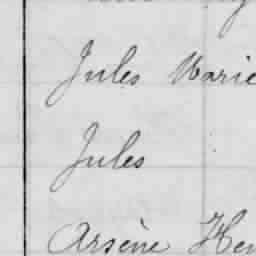 Jules Marie
Jules
Arsène Hen